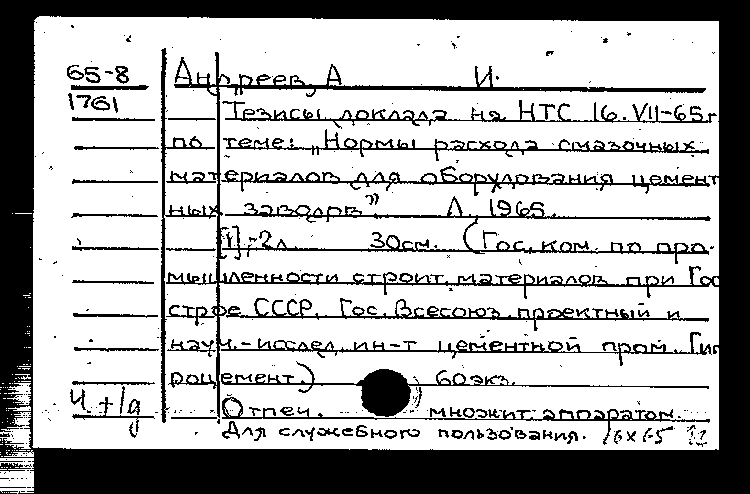 65-8 Андреев, А И.
1761
Тезисы доклада на НТС 16.VII-65г
по теме: „Нормы расхода смазочных
материалов для оборудования цемент
ных заводов” Л. 1965.
[1],-2л. 30см. (Гос. ком. по про-
мышленности строит. материалов при Гос
строе СССР. Гос. Всесоюз. проектный и
науч.-исслед. ин-т цементной пром. Гип
роцемент.) 60экз.
Отпеч. множит. аппаратом.
Для служебного пользования. 16X65